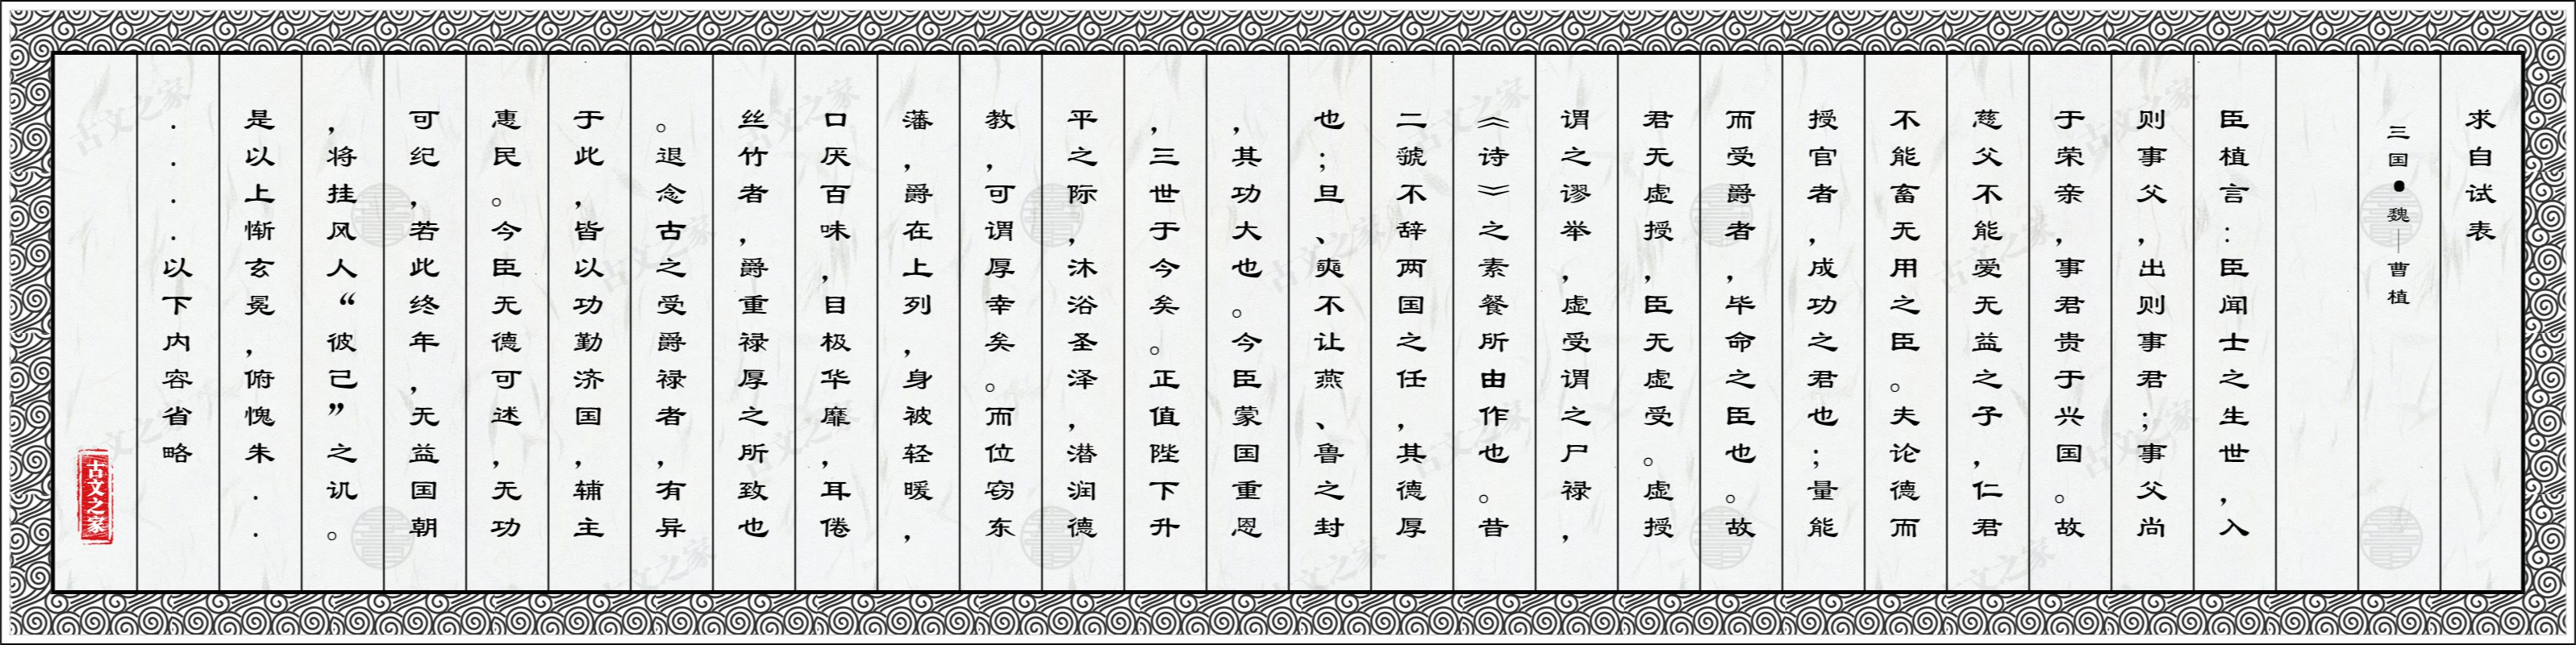 求自试表
三国●魏—曹植
臣植言：臣闻士之生世，入
则事父，出则事君；事父尚
于荣亲，事君贵于兴国。故
慈父不能爱无益之子，仁君
不能畜无用之臣。夫论德而
授官者，成功之君也；量能
而受爵者，毕命之臣也。故
君无虚授，臣无虚受。虚授
谓之谬举，虚受谓之尸禄，
《诗》之素餐所由作也。昔
二虢不辞两国之任，其德厚
也；旦、奭不让燕、鲁之封
，其功大也。今臣蒙国重恩
，三世于今矣。正值陛下升
平之际，沐浴圣泽，潜润德
教，可谓厚幸矣。而位窃东
藩，爵在上列，身被轻暖，
口厌百味，目极华靡，耳倦
丝竹者，爵重禄厚之所致也
。退念古之受爵禄者，有异
于此，皆以功勤济国，辅主
惠民。今臣无德可述，无功
可纪，若此终年，无益国朝
，将挂风人“彼己”之讥。
是以上惭玄冕，俯愧朱..
....以下内容省略
古文之家